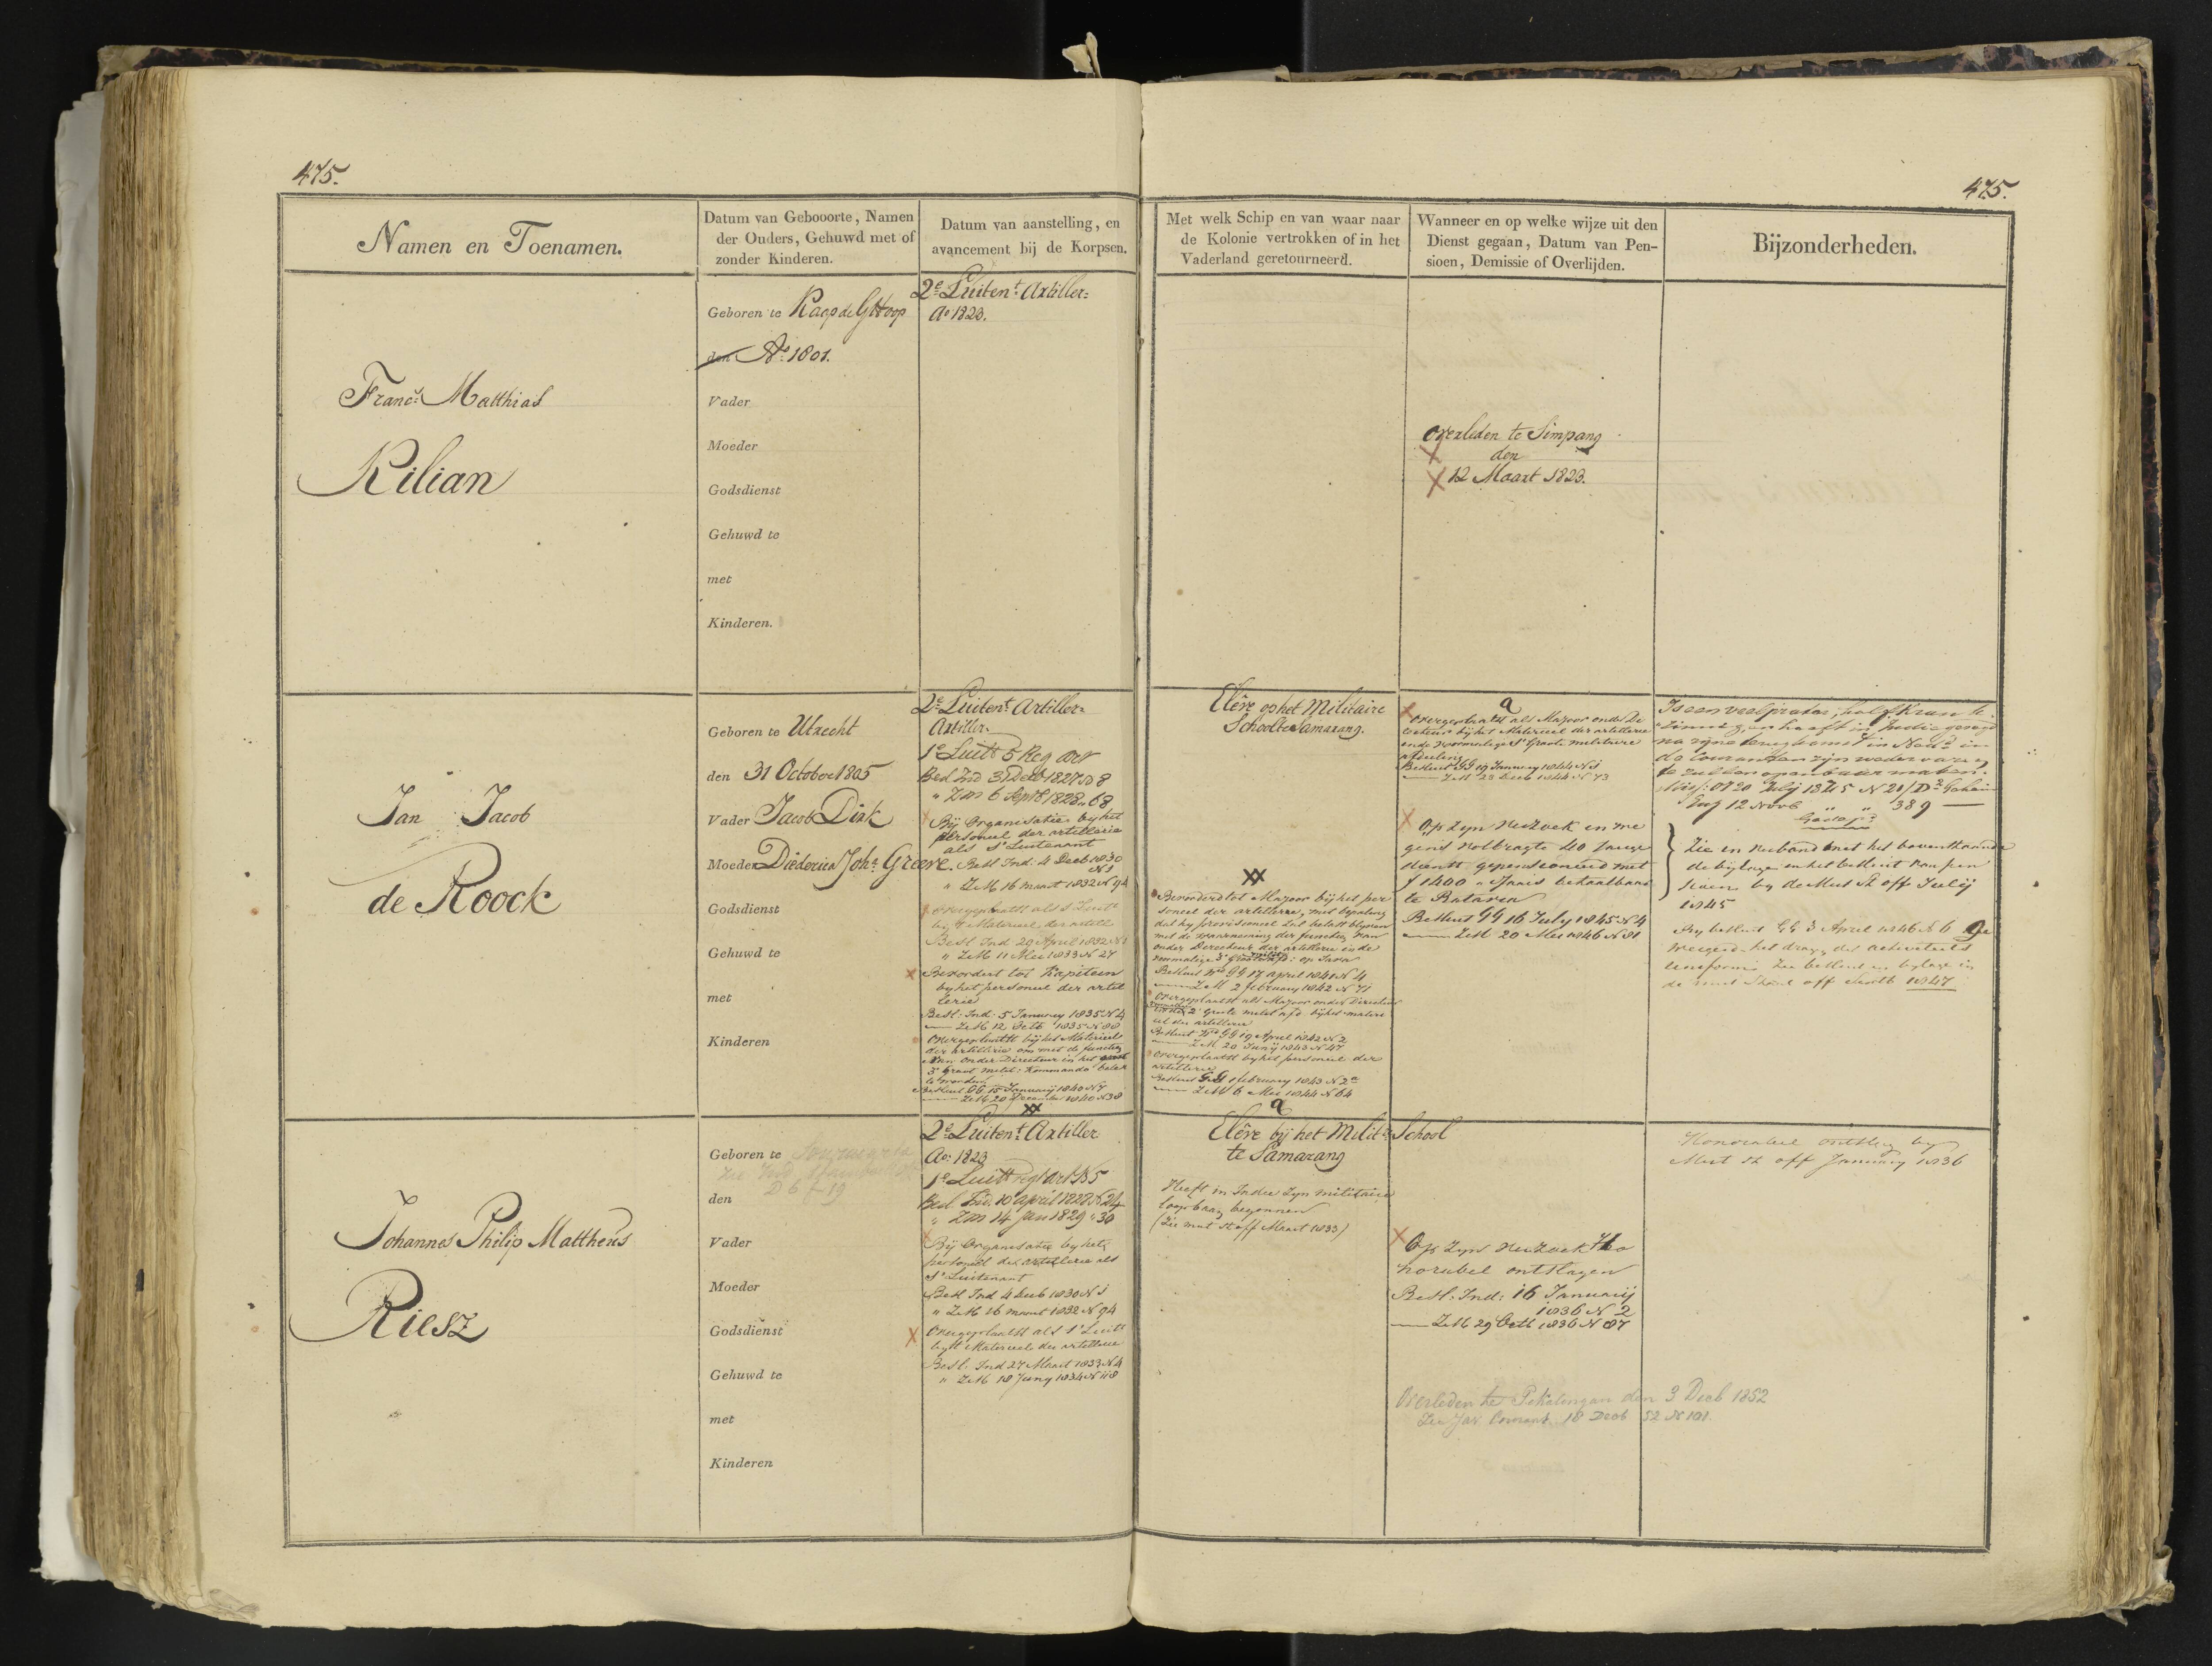 475.
475.
Namen en Toenamen.
Datum van Gebooorte, Namen
der Ouders, Gehuwd met of
zonder Kinderen.
Datum van aanstelling, en
avancement bij de Korpsen.
Met welk Schip en van waar naar
de Kolonie vertrokken of in het
Vaderland geretourneerd.
Wanneer en op welke wijze uit den
Dienst gegaan, Datum van Pen-
sioen, Demissie of Overlijden.
Bijzonderheden.
Franc.s Matthias
Kilian
Geboren te Kaap de G Hoop
den Ao. 1801.
Vader
Moeder
Godsdienst
Gehuwd te
met
Kinderen.
2e Luitent. Artiller=
Ao 1823.
Overleden te Simpang
den
12 Maart 1823.
Jan Jacob
de Roock
Geboren te Utrecht
den 31 October 1805
Vader Jacob Dirk
Moeder Diederica Joha. Greeve
Godsdienst
Gehuwd te
met
Kinderen
2e Luitent. Artiller=
Artiller.
1e Luitt 5 Reg art
Besl Ind 31 Decb 1827 No 8
" ZM 6 Septb 1828 " 68
Bij Organisatie by het
personeel der artillerie
als 1e Luitenant
Besl Ind. 4 Decb 1830
N 1
" ZM 16 maart 1832 N 94
Overgeplaatst als 1 Luitt
by t Materieel der artill
Besl Ind 29 April 1832 N 1
" ZM 11 Mei 1833 N 27
Bevordert tot Kapitein
by het personeel der artil
lerie
Besl: Ind: 5 January 1835 N 4
ZM 12 Octb 1835 N 88
Overgeplaatst bij het Materieel
der artillerie om met de functie
van onder Directeur in het
3e Groot Milit: Kommando belast
te worden
Besluit GG 15 January 1840 N 7
ZM 20 December 1840 N 38
XX
Elêve op het Militaire
School te Samarang.
XX
Bevorderd tot Majoor bij het per
soneel der artillerie, met bepaling
dat hy provisioneel zal belast blyven
met de waarneming der functie van
onder Directeur der artillerie in de
voormalige 3e Groote Milit. afd: op Java
Besluit GG 17 april 1841 N 4
ZM 2 february 1842 N 71
Overgeplaatst als Majoor onder Directeur
2e groote milit afd. bij het materi
eel der artillerie
Besluit GG 19 April 1842 N 2
ZM 20 Junij 1843 N 47
Overgeplaatst by het personeel der
artillerie
Besluit GG 1 february 1843 N 2
ZM 6 Mei 1844 N 64
a
a
Overgeplaatst als Majoor onder Di
recteur bij het Materieel der artillerie
in de voormalige 1e Groote militaire
afdeeling
Besluit GG 19 January 1844 N 1
ZM 23 Decb 1844 N 73
Op zyn verzoek en we
gens volbragte 40 jarige
dienst gepensioneerd met
f 1400 's Jaars betaalbaar
te Batavia
Besluit GG 16 July 1845 N 4
ZM 20 Mei 1846 N 81
Is een veelprater, half Krank
zinnig, en heeft in Indie gezegd
na zyne terugkomst in Ned. in
de Couranten zyn wedervaren
te zullen openbaar maken.
Miss: Of 20 July 1845 N 21/D2 Geheim
Eng 12 Novb " " 389
Zie in verband met het bovenstaande
de bijlage en het besluit van pen
sioen by de Mut St off Julij
1845
By besluit GG 3 April 1846 N 6 ge
weigerd het dragen der activiteits
uniform Zie besluit en bylage in
de mut Staat off 1847
Johannes Philip Mattheus
Riesz
Geboren te
D 6 f 19
den
Vader
Moeder
Godsdienst
Gehuwd te
met
Kinderen
2e Luitent. Artiller
Ao: 1823
1e Luitt regt Art No 5
Besl Ind. 10 april 1828 N 24
" ZM 14 Jan 1829 " 30
Bij Organisatie by het
personeel der artillerie als
1e Luitenant
Besl Ind 4 Decb 1830 N 1
" ZM 16 maart 1832 N 94
Overgeplaatst als 1e Luitt
by t Materieel der artillerie
Besl. Ind 27 Maart 1833 N 4
" ZM 18 Juny 1834 N 118
Elêve bij het Milit: School
te Samarang
Heeft in Indie zyn militaire
loopbaan begonnen
(Zie mut st off Maart 1833)
Op zyn verzoek Ho
norabel ontslagen
Besl: Ind: 16 Januarij
1836 N 2
ZM 29 Octb 1836 N 87
Overleden te Pekalongan den 3 Decb 1852
Zie Jav. Courant. 18 Decb 52 N 101.
Honorabel ontslag by
Mut st off January 1836